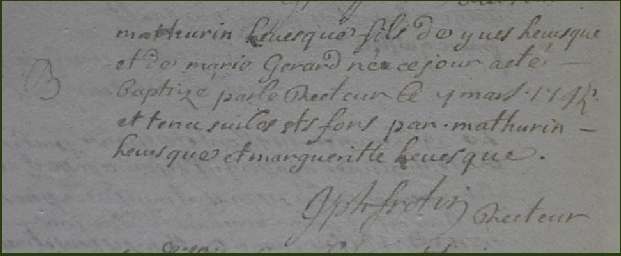 mathurin heuesque fils de yues heuesque
et de marie Gerard né ce jour a eté
B
baptizé par le Recteur le 4 mars 1745
et tenu sur les sts fons par mathurin
heuesque et margueritte heuesque.
Jph fretin Recteur